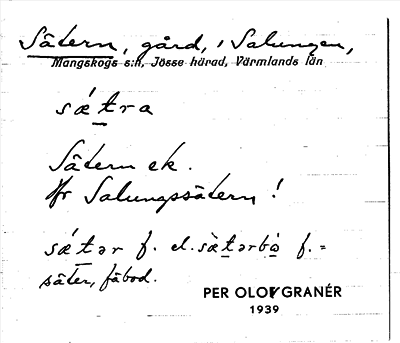 Sätern, gård, i Salungen,
Mangskogs s:n, Jösse härad, Värmlands län
sǽtra
Sätern ek.
Jfr Salungssätern!
sǽtər f. el. sὰtərbò f. =
säter, fäbod.
PER OLOF GRANÉR
1939